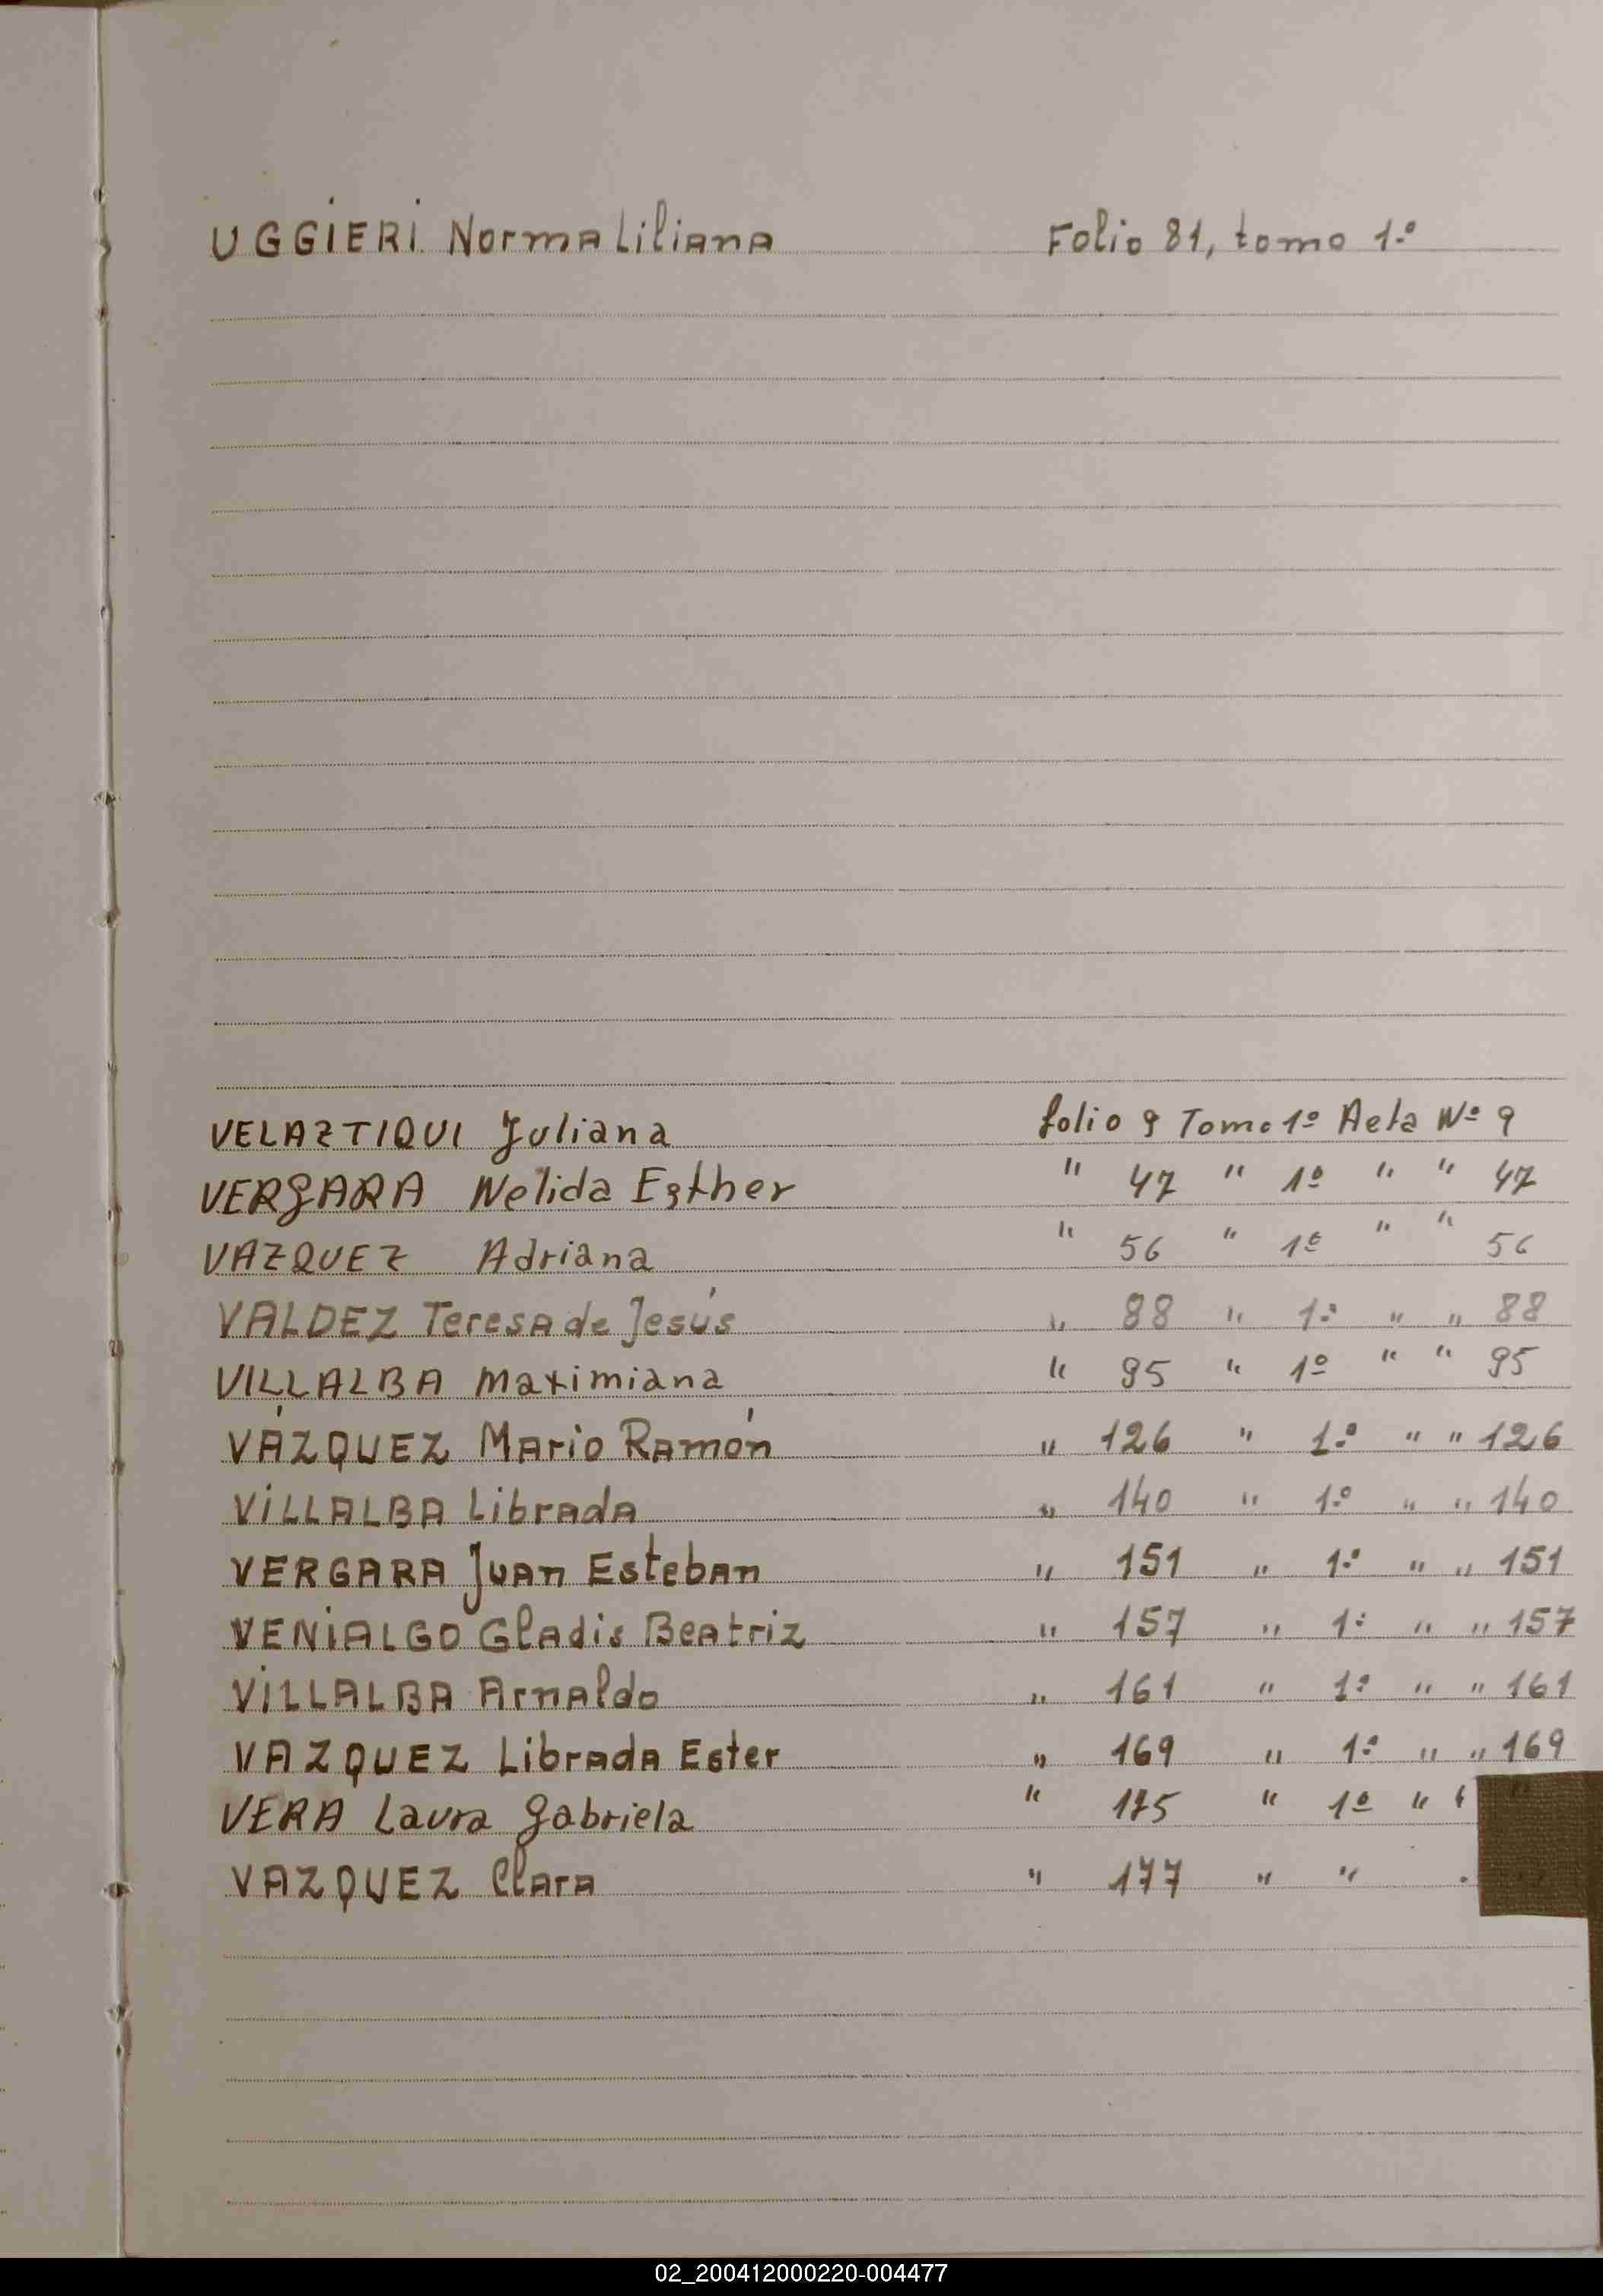 UGGIERI Norma Liliana Folio 81, tomo 1.º
VELAZTIQUI Juliana folio 9 Tomo 1º Acta Nº 9
VERGARA Nelida Esther " 47 " 1º " " 47
VAZQUEZ Adriana " 56 " 1º " " 56
VALDEZ Teresa de Jesús " 88 " 1.º " " 88
VILLALBA Maximiana " 95 " 1º " " 95
VÁZQUEZ Mario Ramón " 126 " 1.º " " 126
VILLALBA Librada " 140 " 1.º " " 140
VERGARA Juan Esteban " 151 " 1.º " " 151
VENIALGO Gladis Beatriz " 157 " 1.º " " 157
VILLALBA Arnaldo " 161 " 1.º " " 161
VAZQUEZ Librada Ester " 169 " 1.º " " 169
VERA Laura Gabriela " 175 " 1º " "
VAZQUEZ Clara " 177 " "
02_200412000220-004477